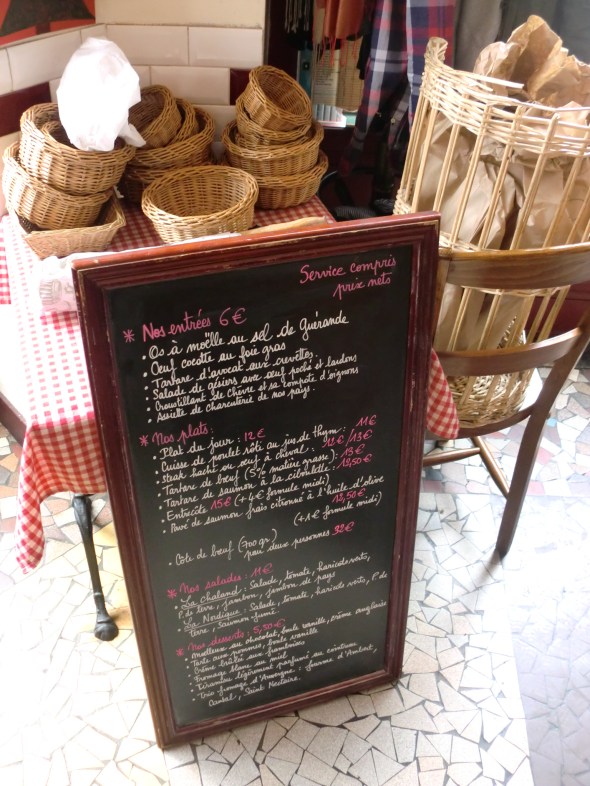 Service compris
prix nets
* Nos entrées 6€
• Os à moëlle au sel de Guérande
• Oeuf cocotte au foie gras
• Tartare d'avocat aux crevettes.
• Salade de gésiers avec oeuf poché et lardons
• Croustillant de chèvre et sa compote d'oignons
• Assiette de charcuterie de nos pays.
* Nos plats:
• Plat du jour: 12€
• Cuisse de poulet rôti au jus de thym: 11€
• Steak haché ou oeuf à cheval: 12€/13€
• Tartare de boeuf (5% matière grasse): 13€
• Tartare de saumon à la ciboulette: 12,50€
• Entrecôte 15€ (+4€ formule midi)
• Pavé de saumon frais citronné à l'huile d'olive
12,50€
(+1€ formule midi)
• Côte de boeuf (700gr)
pour deux personnes 32€
* Nos salades: 11€
• La Chaland: Salade, tomate, haricots verts,
P. de terre, jambon, jambon de pays
• La Nordique: Salade, tomate, haricots verts, P. de
terre, saumon fumé.
* Nos desserts: 5,50€
• Moelleux au chocolat, boule vanille, crème anglaise
• Tarte aux pommes, boule vanille
• Crème brûlée aux framboises
• Fromage blanc au miel
• Tiramisu légèrement parfumé au cointreau
• Trio fromage d'Auvergne: fourme d'Ambert,
Cantal, Saint Nectaire.